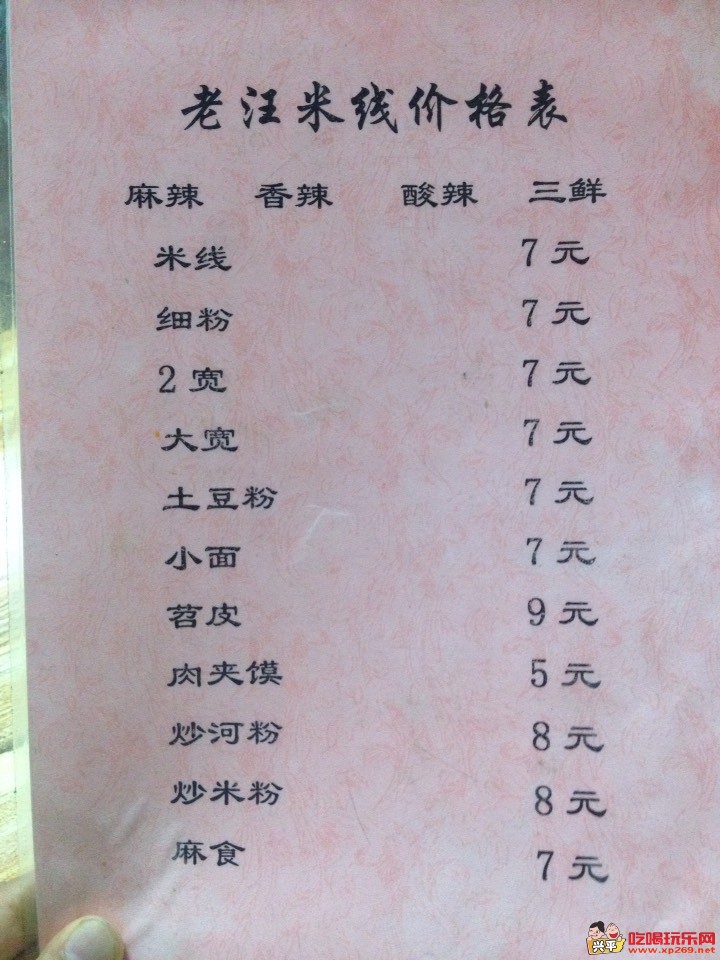 老汪米线价格表
麻辣 香辣 酸辣 三鲜
米线 7元
细粉 7元
2宽 7元
大宽 7元
土豆粉 7元
小面 7元
苕皮 9元
肉夹馍 5元
炒河粉 8元
炒米粉 8元
麻食 7元
兴平 吃喝玩乐网
www.xp269.net